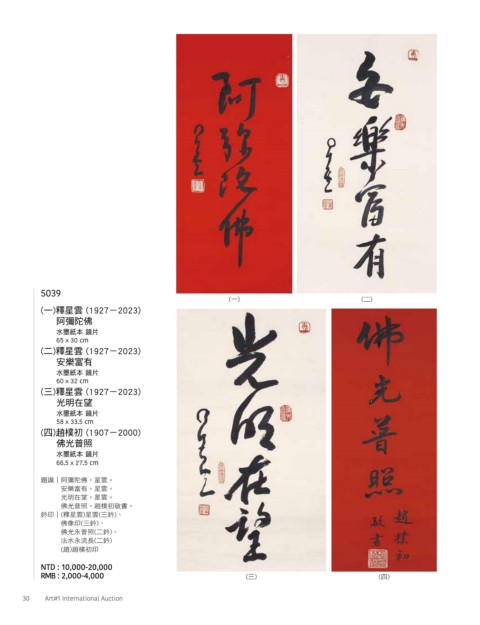 5039
(一)釋星雲 (1927－2023)
阿彌陀佛
水墨紙本 鏡片
65 x 30 cm
(二)釋星雲 (1927－2023)
安樂富有
水墨紙本 鏡片
60 x 32 cm
(三)釋星雲 (1927－2023)
光明在望
水墨紙本 鏡片
58 x 33.5 cm
(四)趙樸初 (1907－2000)
佛光普照
水墨紙本 鏡片
66.5 x 27.5 cm
題識｜阿彌陀佛。星雲。
安樂富有。星雲。
光明在望。星雲。
佛光普照。趙樸初敬書。
鈐印｜(釋星雲)星雲(三鈐)、
佛像印(三鈐)、
佛光永普照(二鈐)、
法水永流長(二鈐)
(趙)趙樸初印
NTD : 10,000-20,000
RMB : 2,000-4,000
阿弥陀佛
星雲
(一)
安樂富有
星雲
(二)
光明在望
星雲
(三)
佛光普照
趙樸初
敬書
(四)
30 Art#1 International Auction